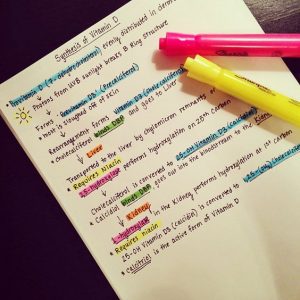 Synthesis of Vitamin D
Provitamin D (7-dehydrocholesterol) evenly distributed in dermis
Photons from UVB sunlight breaks B Ring structure
Forms Previtamin D3 (Precalciferol)
* heat is given off of skin
Rearrangement forms Vitamin D3 (Cholecalciferol)
* Cholecalciferol binds DBP and goes to Liver
Liver
Transported to the liver by chylomicron remnants or
* Requires Niacin
25-hydroxylase performs hydroxylation on 25th Carbon
Cholecalciferol is converted to 25-OH Vitamin D3 (calcidiol)
* Calcidiol binds DBP goes out into the bloodstream to the Kidney
Kidney
1-hydroxylase in the Kidney performs hydroxylation at 1st carbon
* Requires niacin
25-OH Vitamin D3 (calcidiol) is converted to
* Calcitriol is the active form of Vitamin D
Sharpie